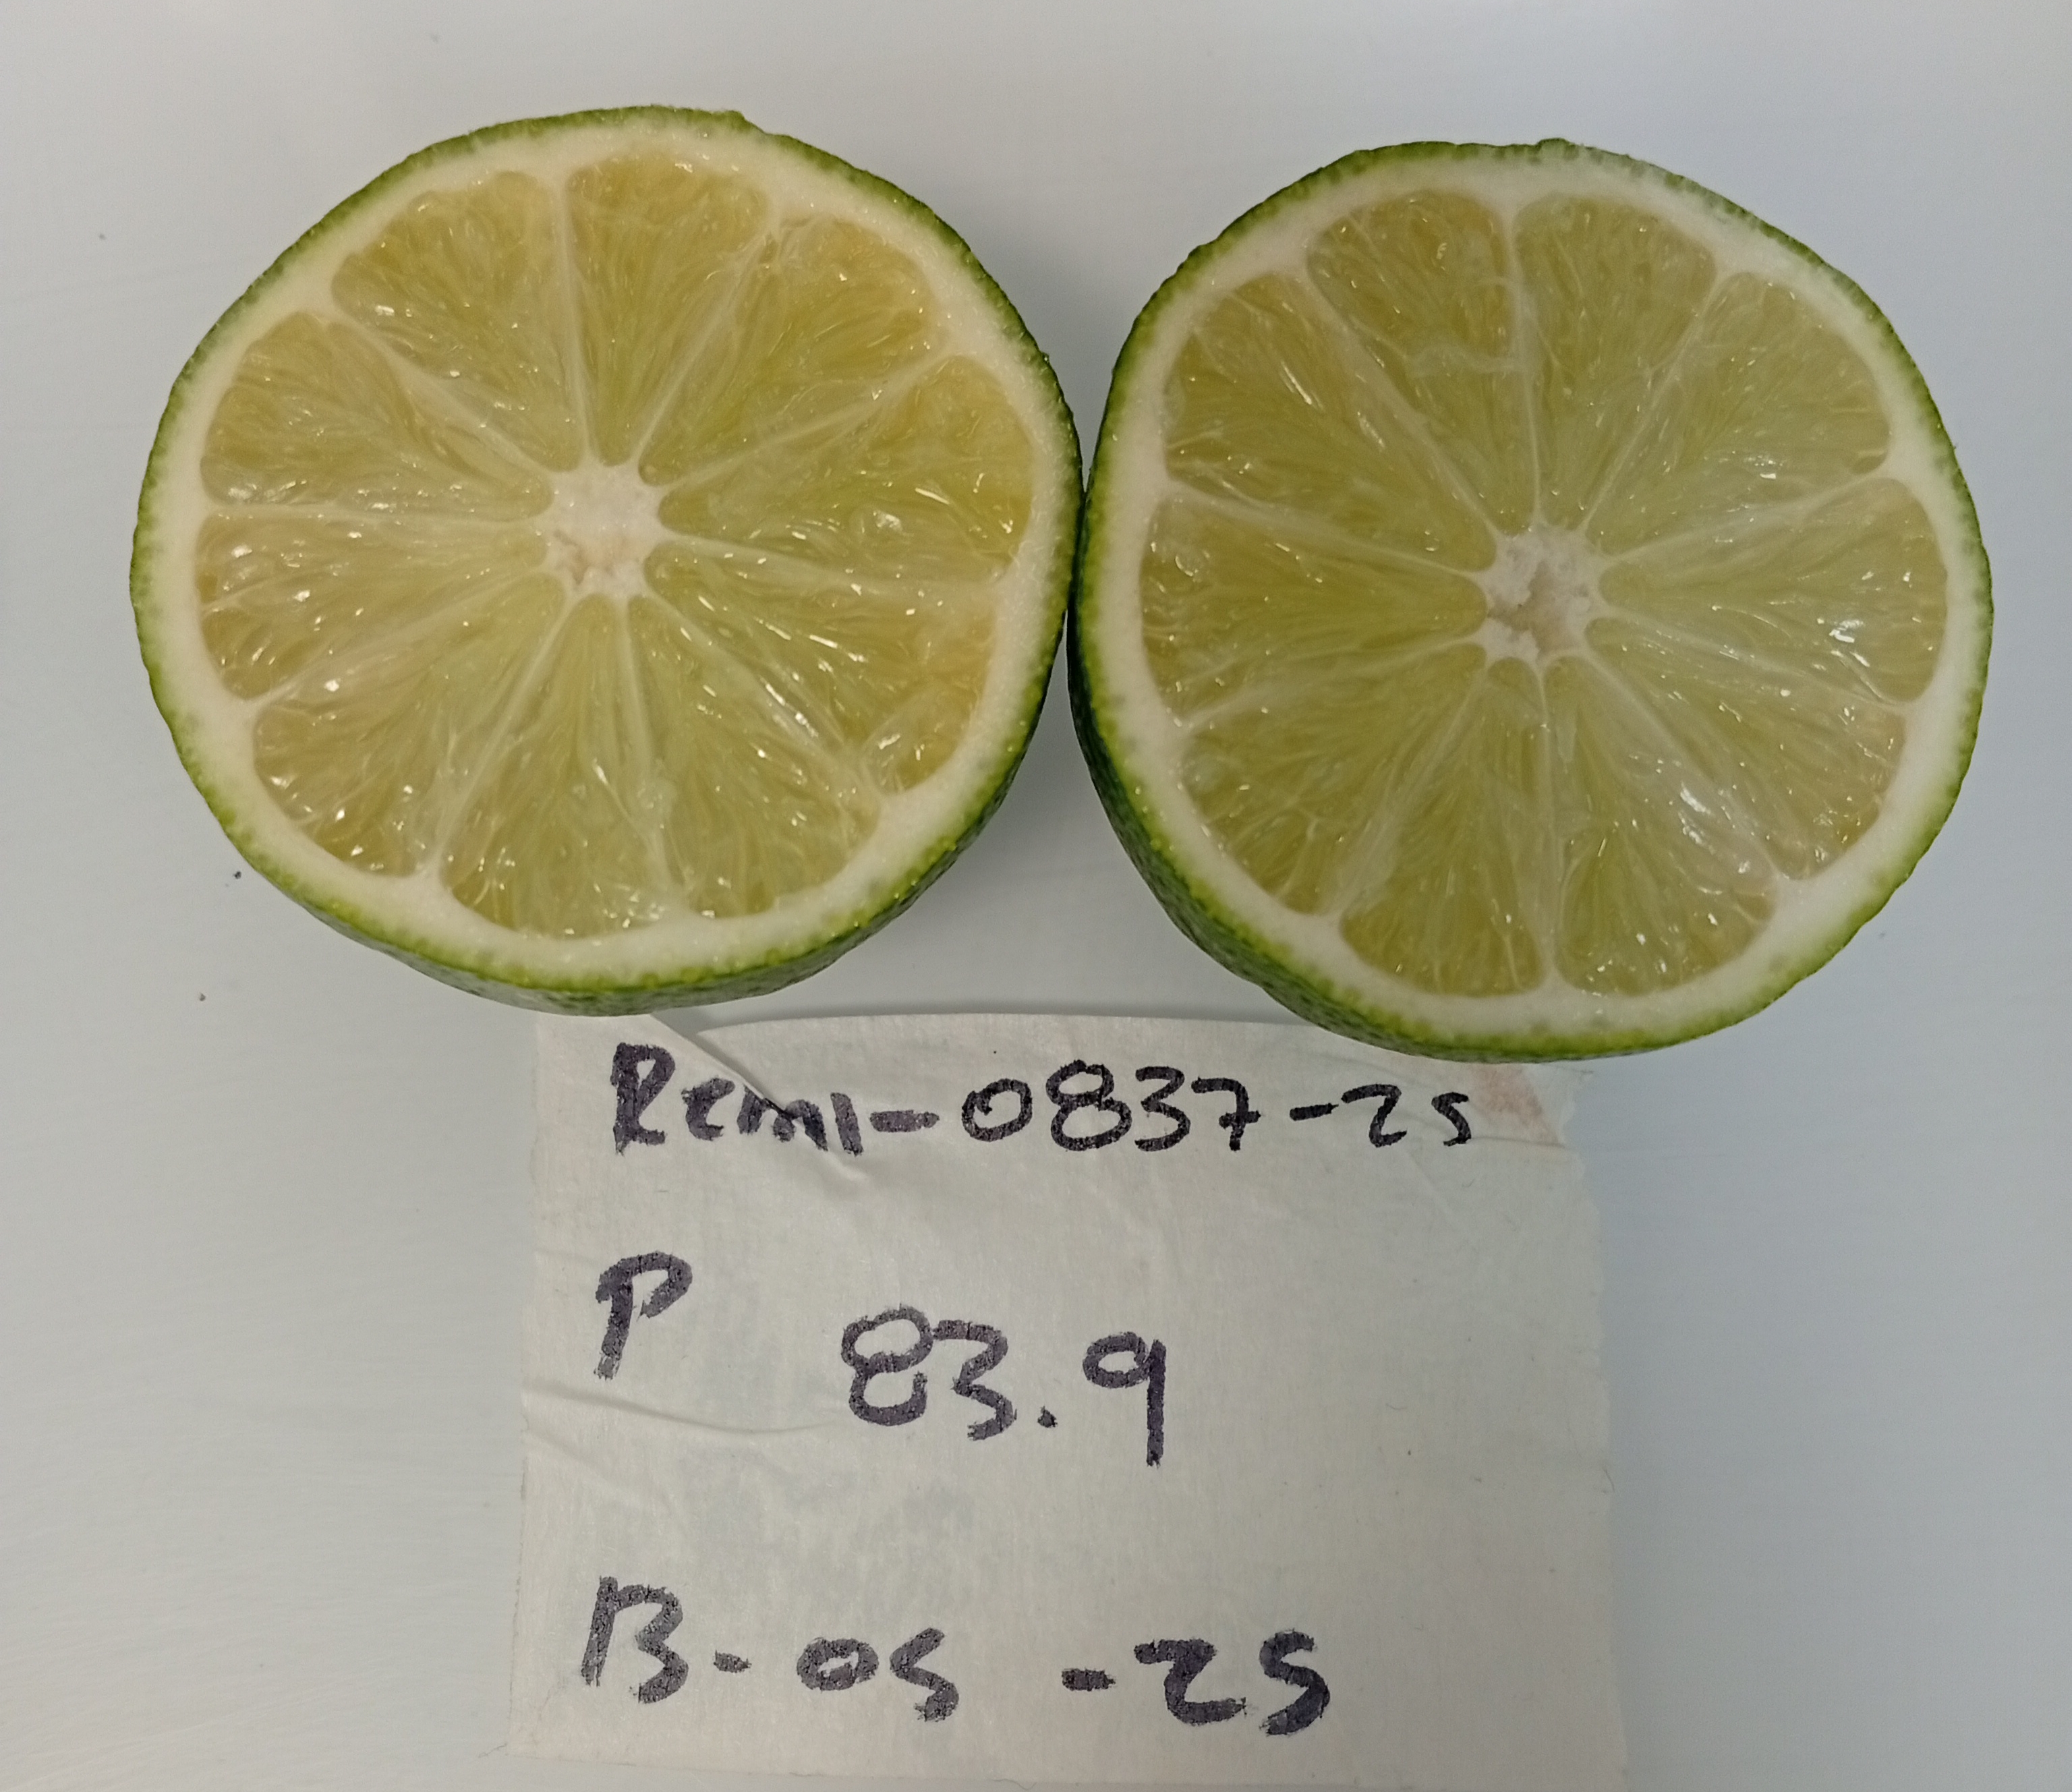 Remi-0837-25
P
83.9
13-05-25